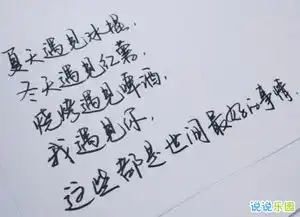 夏天遇见冰棍，
冬天遇见红薯，
烧烤遇见啤酒，
我遇见你，
这些都是世间最好的事情
说说乐园